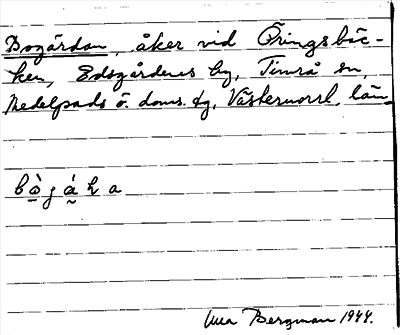 Bogärdan, åker vid Öringsbäc-
ken, Edsgårdens by, Timrå sn,
Medelpads ö. doms. dg, Västernorrl. län
b ò̱ g á̰ h a
Bergman 1944.